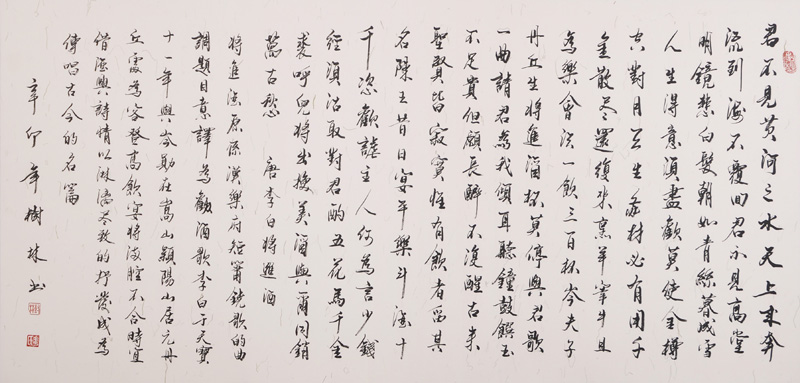 君不見黃河之水天上來奔
流到海不復回君不見高堂
明鏡悲白髮朝如青絲暮成雪
人生得意須盡歡莫使金樽
空對月天生我材必有用千
金散盡還復來烹羊宰牛且
為樂會須一飲三百杯岑夫子
丹丘生將進酒杯莫停與君歌
一曲請君為我傾耳聽鐘鼓饌玉
不足貴但願長醉不復醒古來
聖賢皆寂寞惟有飲者留其
名陳王昔日宴平樂斗酒十
千恣歡謔主人何為言少錢
徑須沽取對君酌五花馬千金
裘呼兒將出換美酒與爾同銷
萬古愁 唐李白將進酒
將進酒原係漢樂府短簫鐃歌的曲
調題目意譯為勸酒歌李白于天寶
十一年與岑勛在嵩山潁陽山居元丹
丘處為客登高飲宴將滿腔不合時宜
借酒興詩情以淋漓盡致的抒發成為
傳唱古今的名篇
辛卯年樹林书